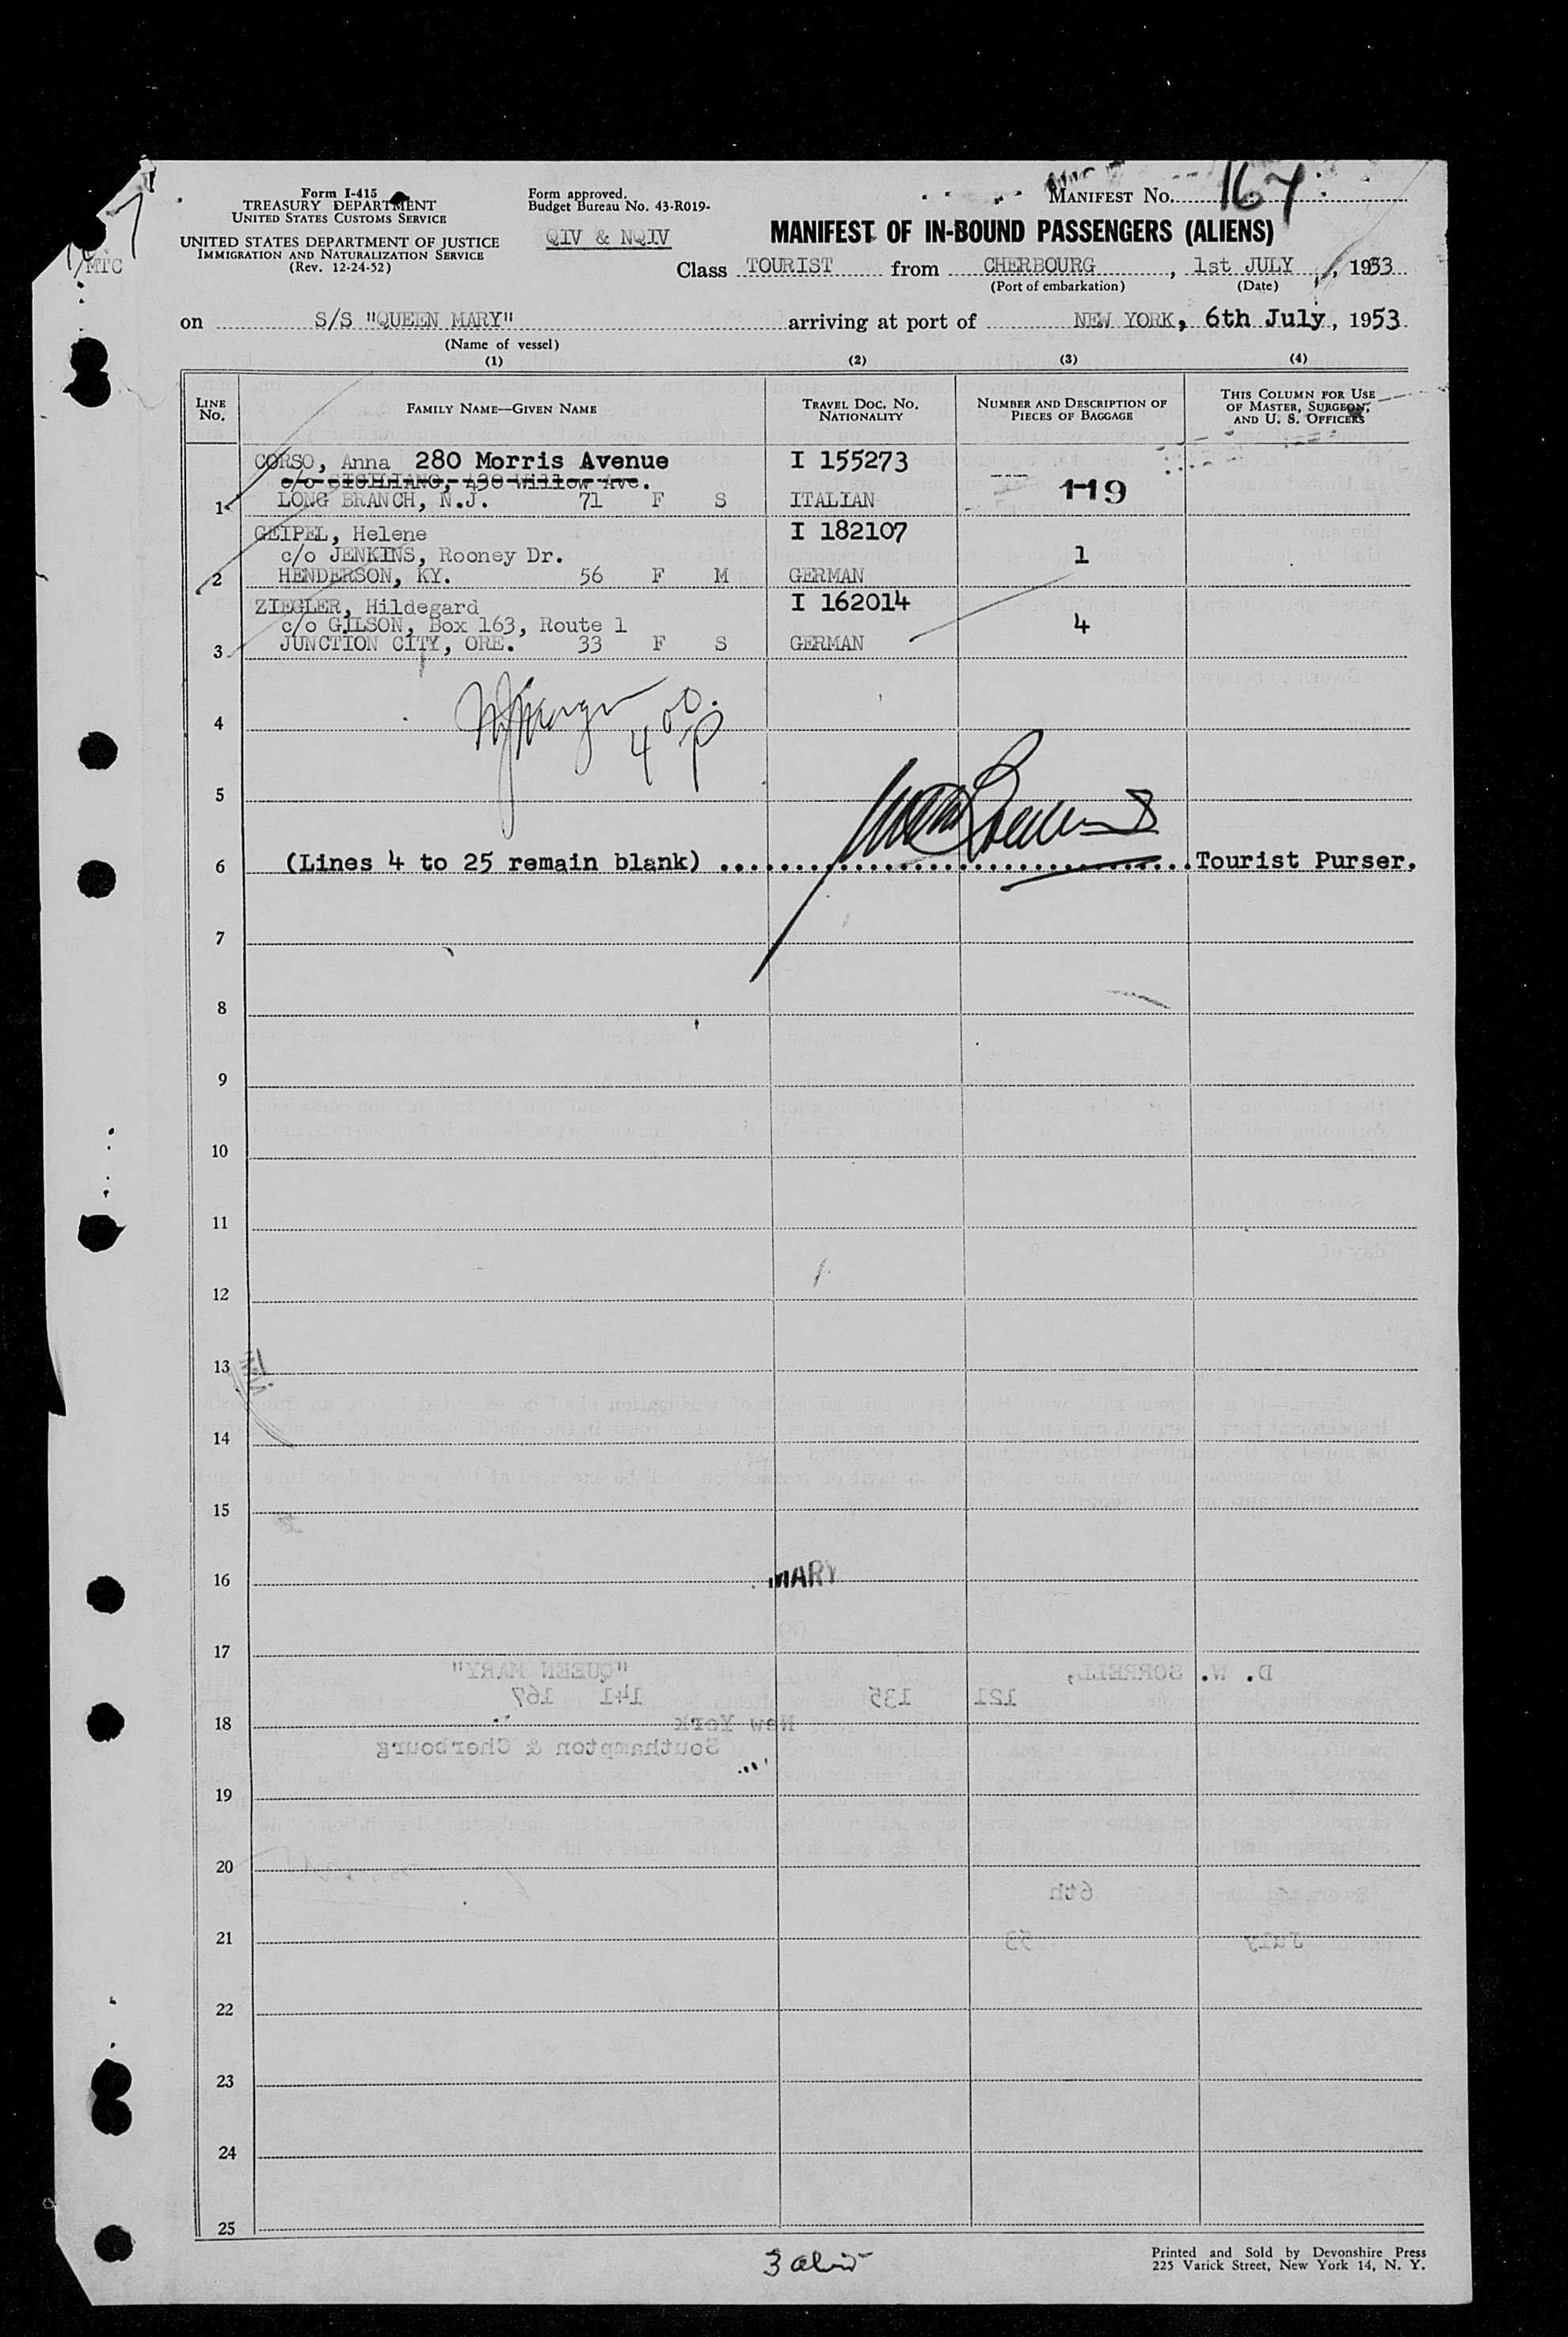 Form I-415
TREASURY DEPARTMENT
UNITED STATES CUSTOMS SERVICE
UNITED STATES DEPARTMENT OF JUSTICE
IMMIGRATION AND NATURALIZATION SERVICE
(Rev. 12-24-52)
MTC
Form approved.
Budget Bureau No. 43-R019-
QIV & NQIV
MANIFEST NO. 167
MANIFEST OF IN-BOUND PASSENGERS (ALIENS)
Class TOURIST from CHERBOURG, 1st JULY, 1953
(Port of embarkation) (Date)
on S/S "QUEEN MARY" arriving at port of NEW YORK, 6th July, 1953
(Name of vessel)
(1) (2) (3) (4)
LINE NO. FAMILY NAME—GIVEN NAME TRAVEL DOC. NO. NATIONALITY NUMBER AND DESCRIPTION OF PIECES OF BAGGAGE THIS COLUMN FOR USE OF MASTER, SURGEON, AND U. S. OFFICERS
CORSO, Anna 280 Morris Avenue I 155273
c/o SICILIANO, 490 Willow Ave. 119
1 LONG BRANCH, N.J. 71 F S ITALIAN
GEIPEL, Helene I 182107
c/o JENKINS, Rooney Dr. 1
2 HENDERSON, KY. 56 F M GERMAN
ZIEGLER, Hildegard I 162014
c/o GILSON, Box 163, Route 1 4
3 JUNCTION CITY, ORE. 33 F S GERMAN
4
5
6 (Lines 4 to 25 remain blank) Tourist Purser.
7
8
9
10
11
12
13
14
15
16 MARY
17
"QUEEN MARY" D. W. SORRELL,
141 167 135 121
18 New York
Southampton & Cherbourg
19
20
6th
21 53 July
22
23
24
25
3
Printed and Sold by Devonshire Press
225 Varick Street, New York 14, N. Y.